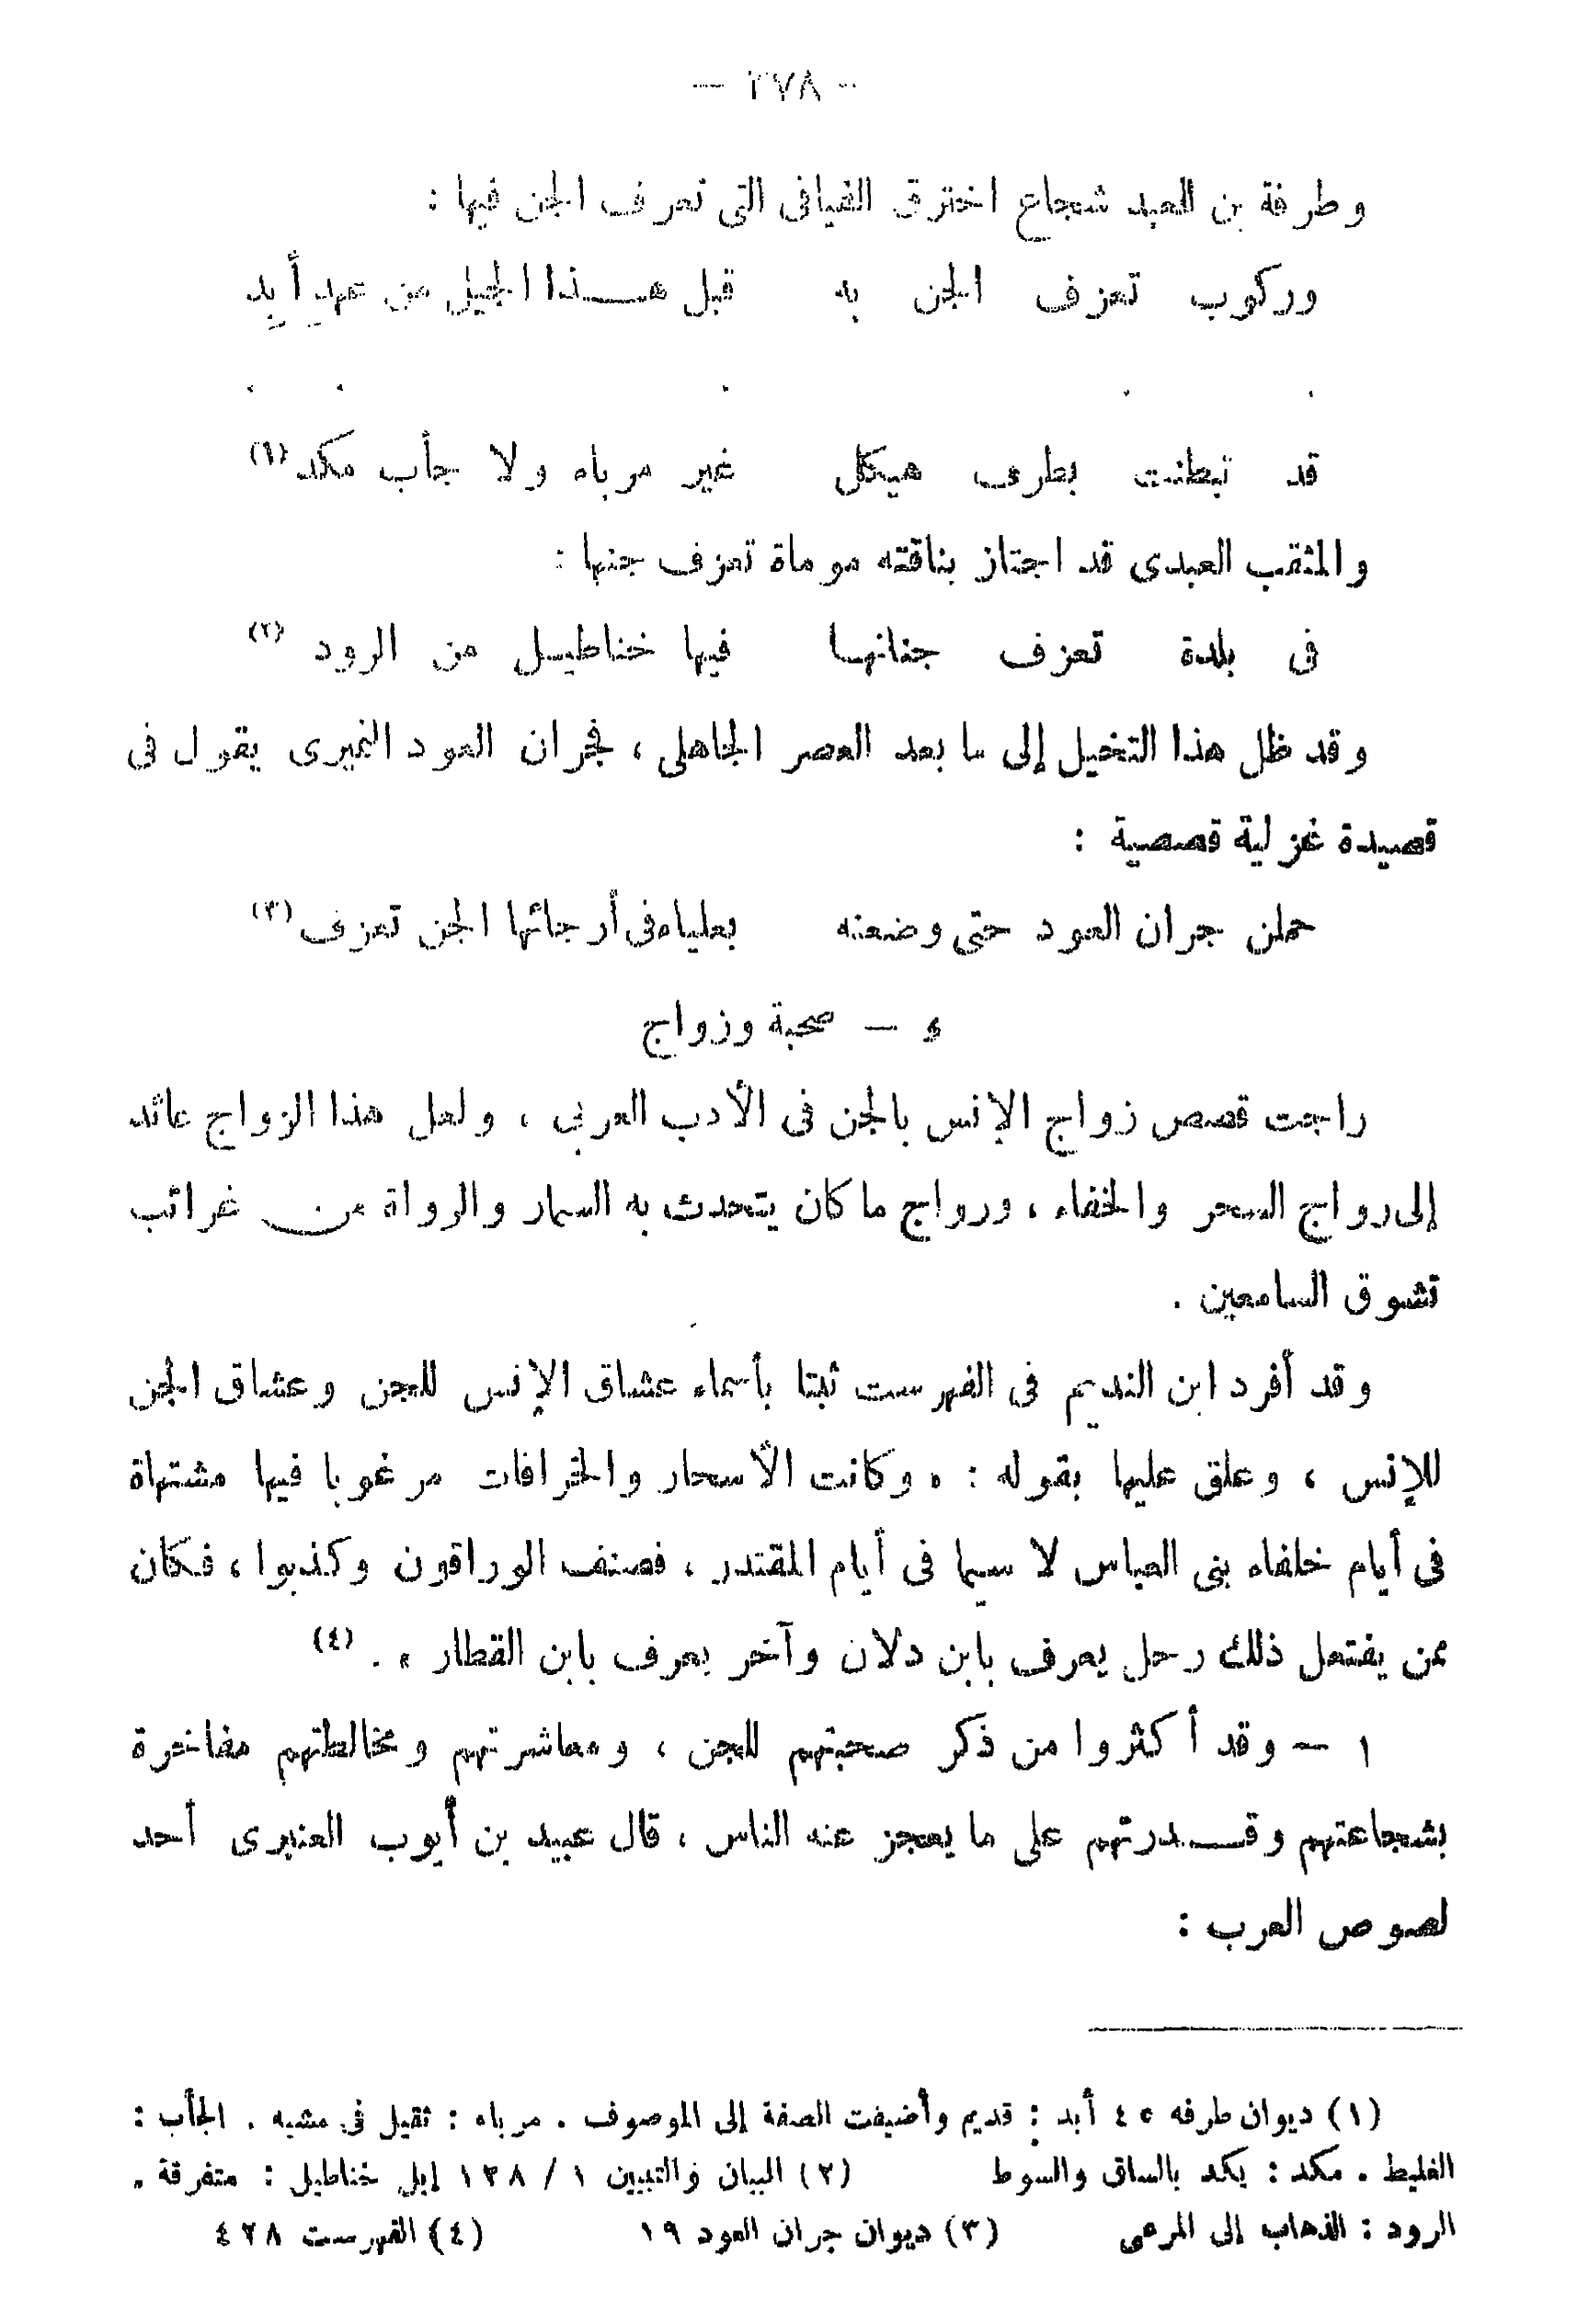 - ٢٧٨ -
وطرفة بن العبد شجاع اخترق الفيافى التى تعرف الجن فيها :
وركوب تعزف الجن به قبل هـذا الجيل من عهد أبد
. . . . .
قد تبطنت بطرف هيكل غير مرباه ولا جأب مكد (١)
والمثقب العبدى قد اجتاز بناقته موماة تعزف جنها :
فى بلدة تعزف جنانها فيها خناطيل من الرود (٢)
وقد ظل هذا التخيل إلى ما بعد العصر الجاهلى ، فجران العود النميرى يقول فى
قصيدة غزلية قصصية :
حملن جران العود حتى وضعنه بعلياء فى أرجائها الجن تعزف (٣)
و - صحبة وزواج
راجت قصص زواج الإنس بالجن فى الأدب العربى ، ولعل هذا الزواج عائد
إلى رواج السحر والخفاء ، ورواج ما كان يتحدث به السمار والرواة من غرائب
تشوق السامعين .
وقد أفرد ابن النديم فى الفهرست ثبتا بأسماء عشاق الإنس للجن وعشاق الجن
للإنس ، وعلق عليها بقوله : « وكانت الأسحار والخرافات مرغوبا فيها مشتهاة
فى أيام خلفاء بنى العباس لا سيما فى أيام المقتدر ، فصنف الوراقون وكذبوا ، فكان
ممن يفتعل ذلك رجل يعرف بابن دلان وآخر يعرف بابن القطار » . (٤)
١ - وقد أكثروا من ذكر صحبتهم للجن ، ومعاشرتهم ومخالطتهم مفاخرة
بشجاعتهم وقـدرتهم على ما يعجز عنه الناس ، قال عبيد بن أيوب العنبرى أحد
لصوص العرب :
(١) ديوان طرفه ٤٥ أبد : قديم وأضيفت الصفة إلى الموصوف . مرباه : ثقيل فى مشيه . الجأب :
الغليظ . مكد : يكد بالساق والسوط (٢) البيان والتبيين ١ / ١٣٨ إبل خناطيل : متفرقة .
الرود : الذهاب إلى المرعى (٣) ديوان جران العود ١٩ (٤) الفهرست ٤٢٨